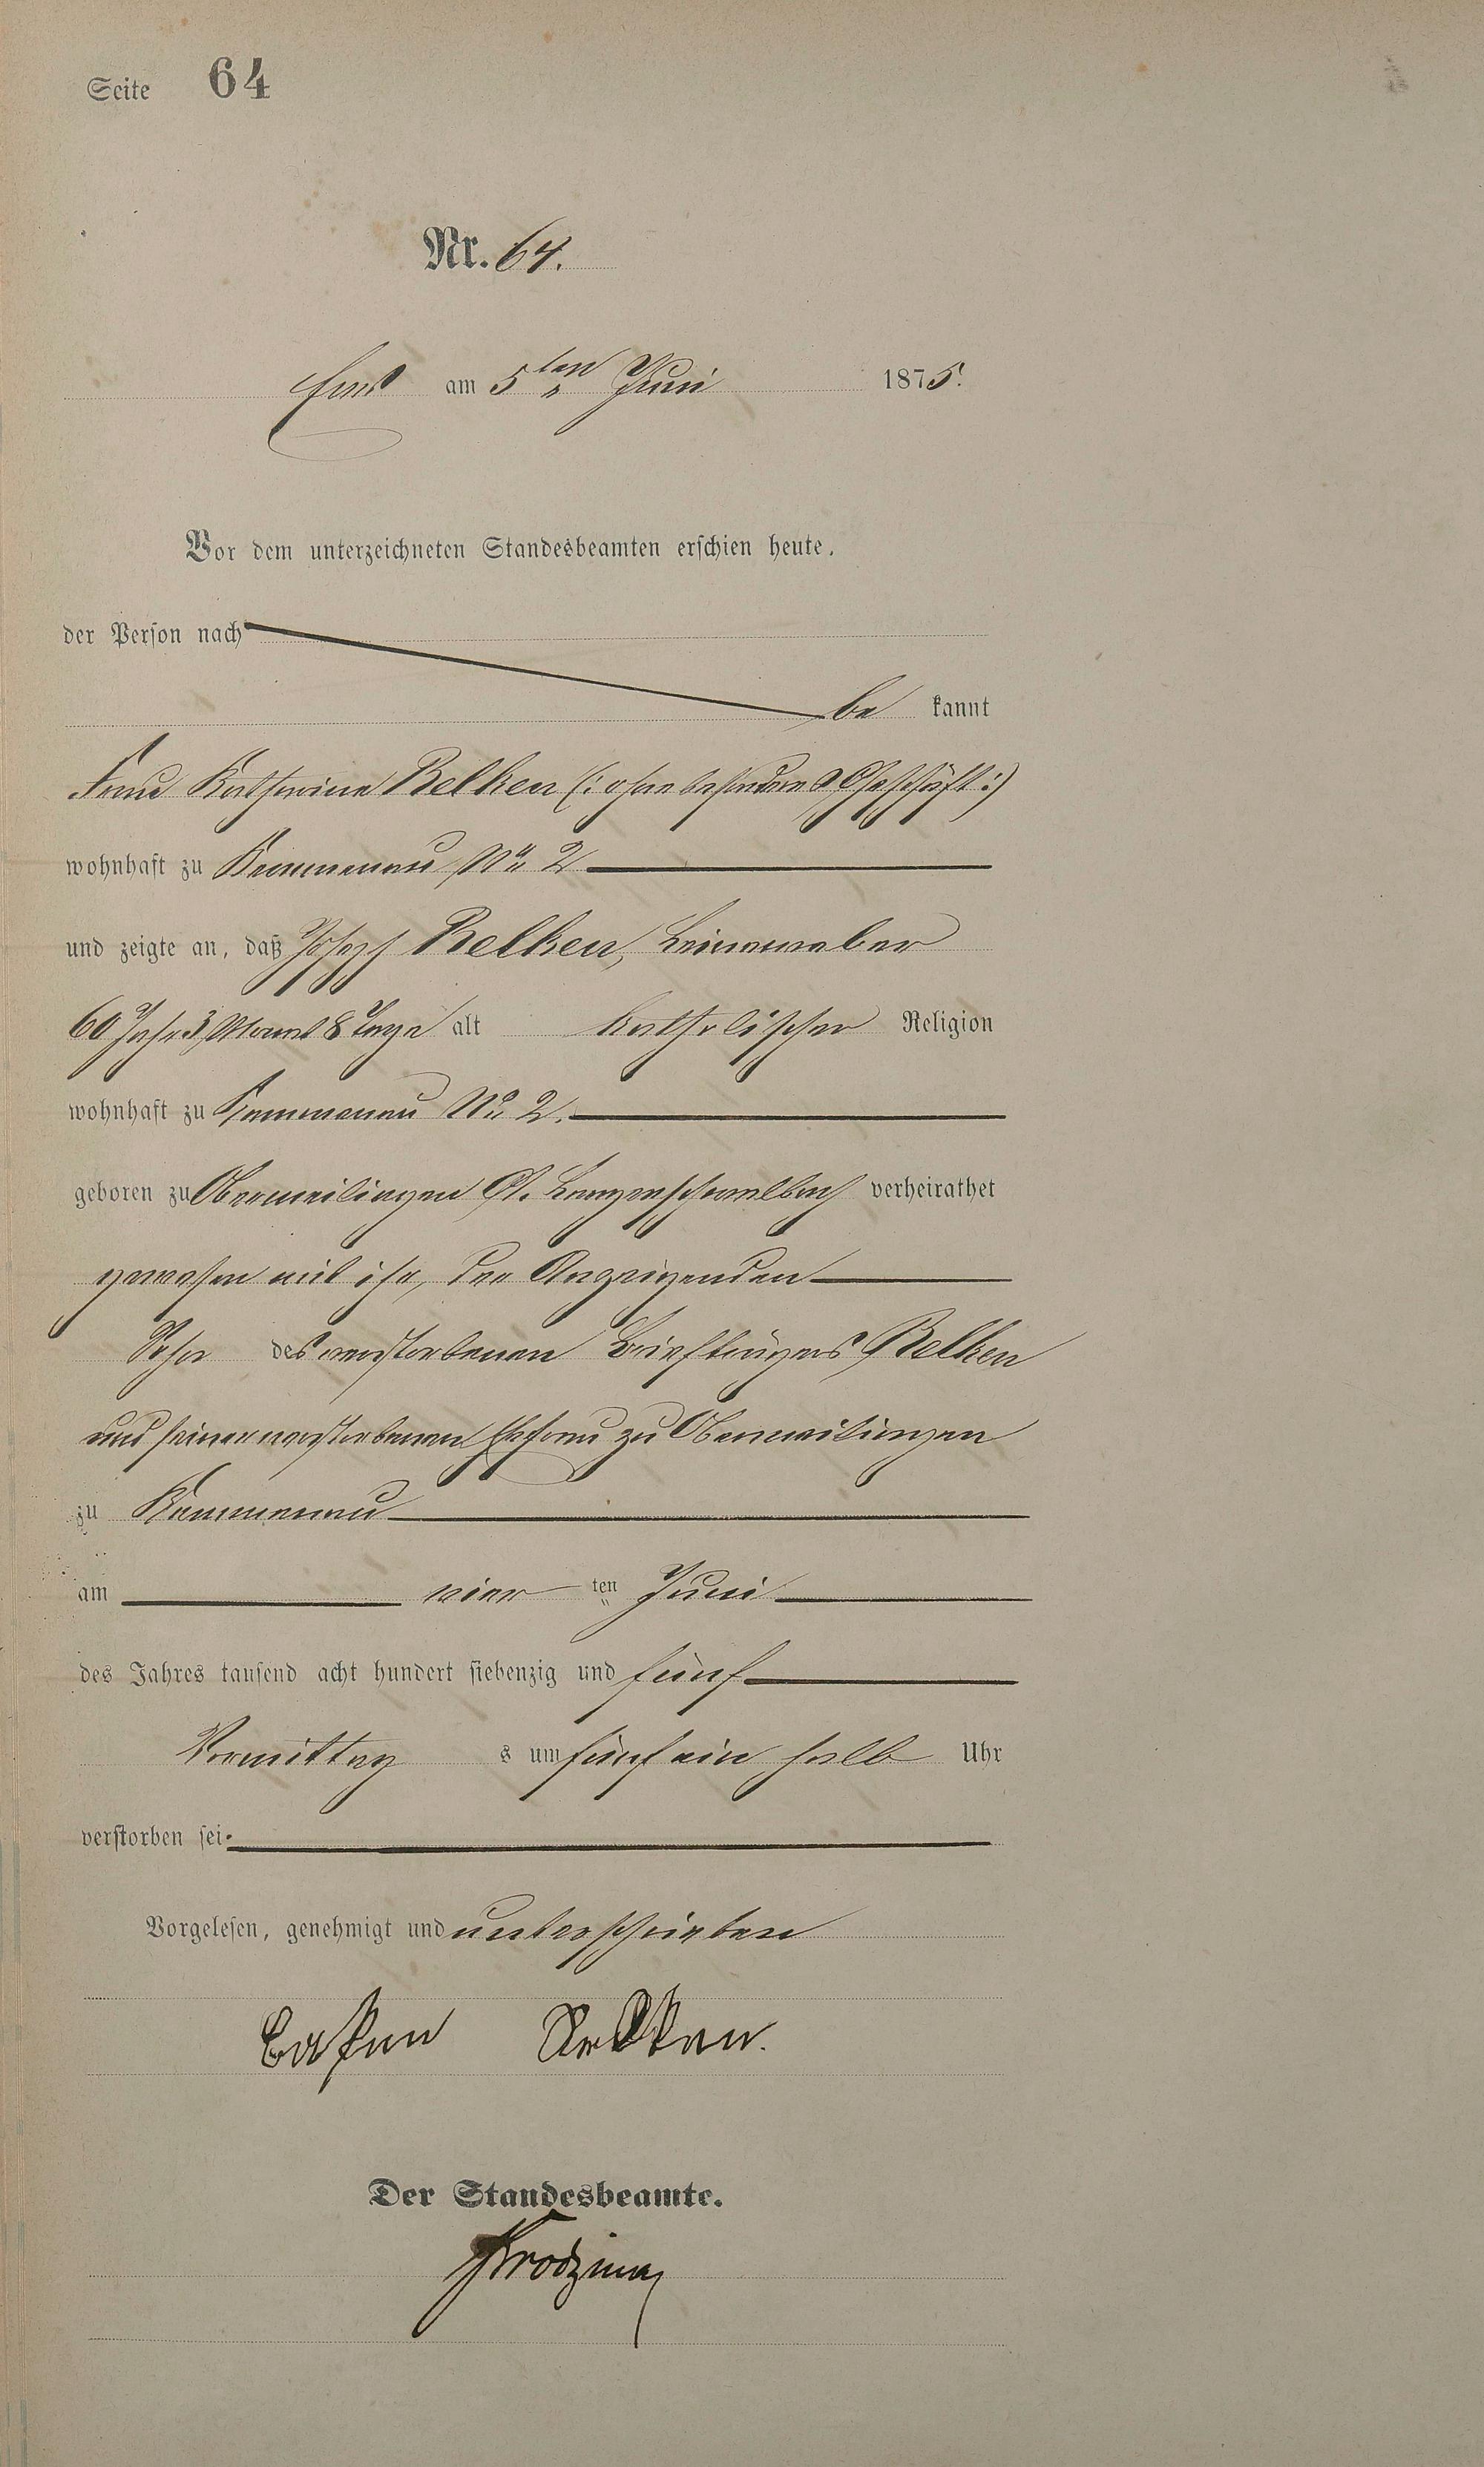 Seite 64
Nr. 64.
Ems am 5ten Juni 1875.
Vor dem unterzeichneten Standesbeamten erschien heute,
der Person nach
be kannt
Frau Katharine Relken (: ohne besonderes Geschäft :)
wohnhaft zu Kemmenau No 2
und zeigte an, daß Joseph Relken, Leinenweber
60 Jahr 3 Monat 8 Tage alt katholischer Religion
wohnhaft zu Kemmenau No 2.
geboren zu Obermeilingen A. Langenschwalbach verheirathet
gewesen mit ihr, der Anzeigenden
Sohn des verstorbenen Briefträgers Relken
und seiner verstorbenen Ehefrau zu Obermeilingen
zu Kemmenau
am vier ten Juni
des Jahres tausend acht hundert siebenzig und fünf
Vormittag s um fünf ein halb Uhr
verstorben sei.
Vorgelesen, genehmigt und unterschrieben
Relken.
Der Standesbeamte.